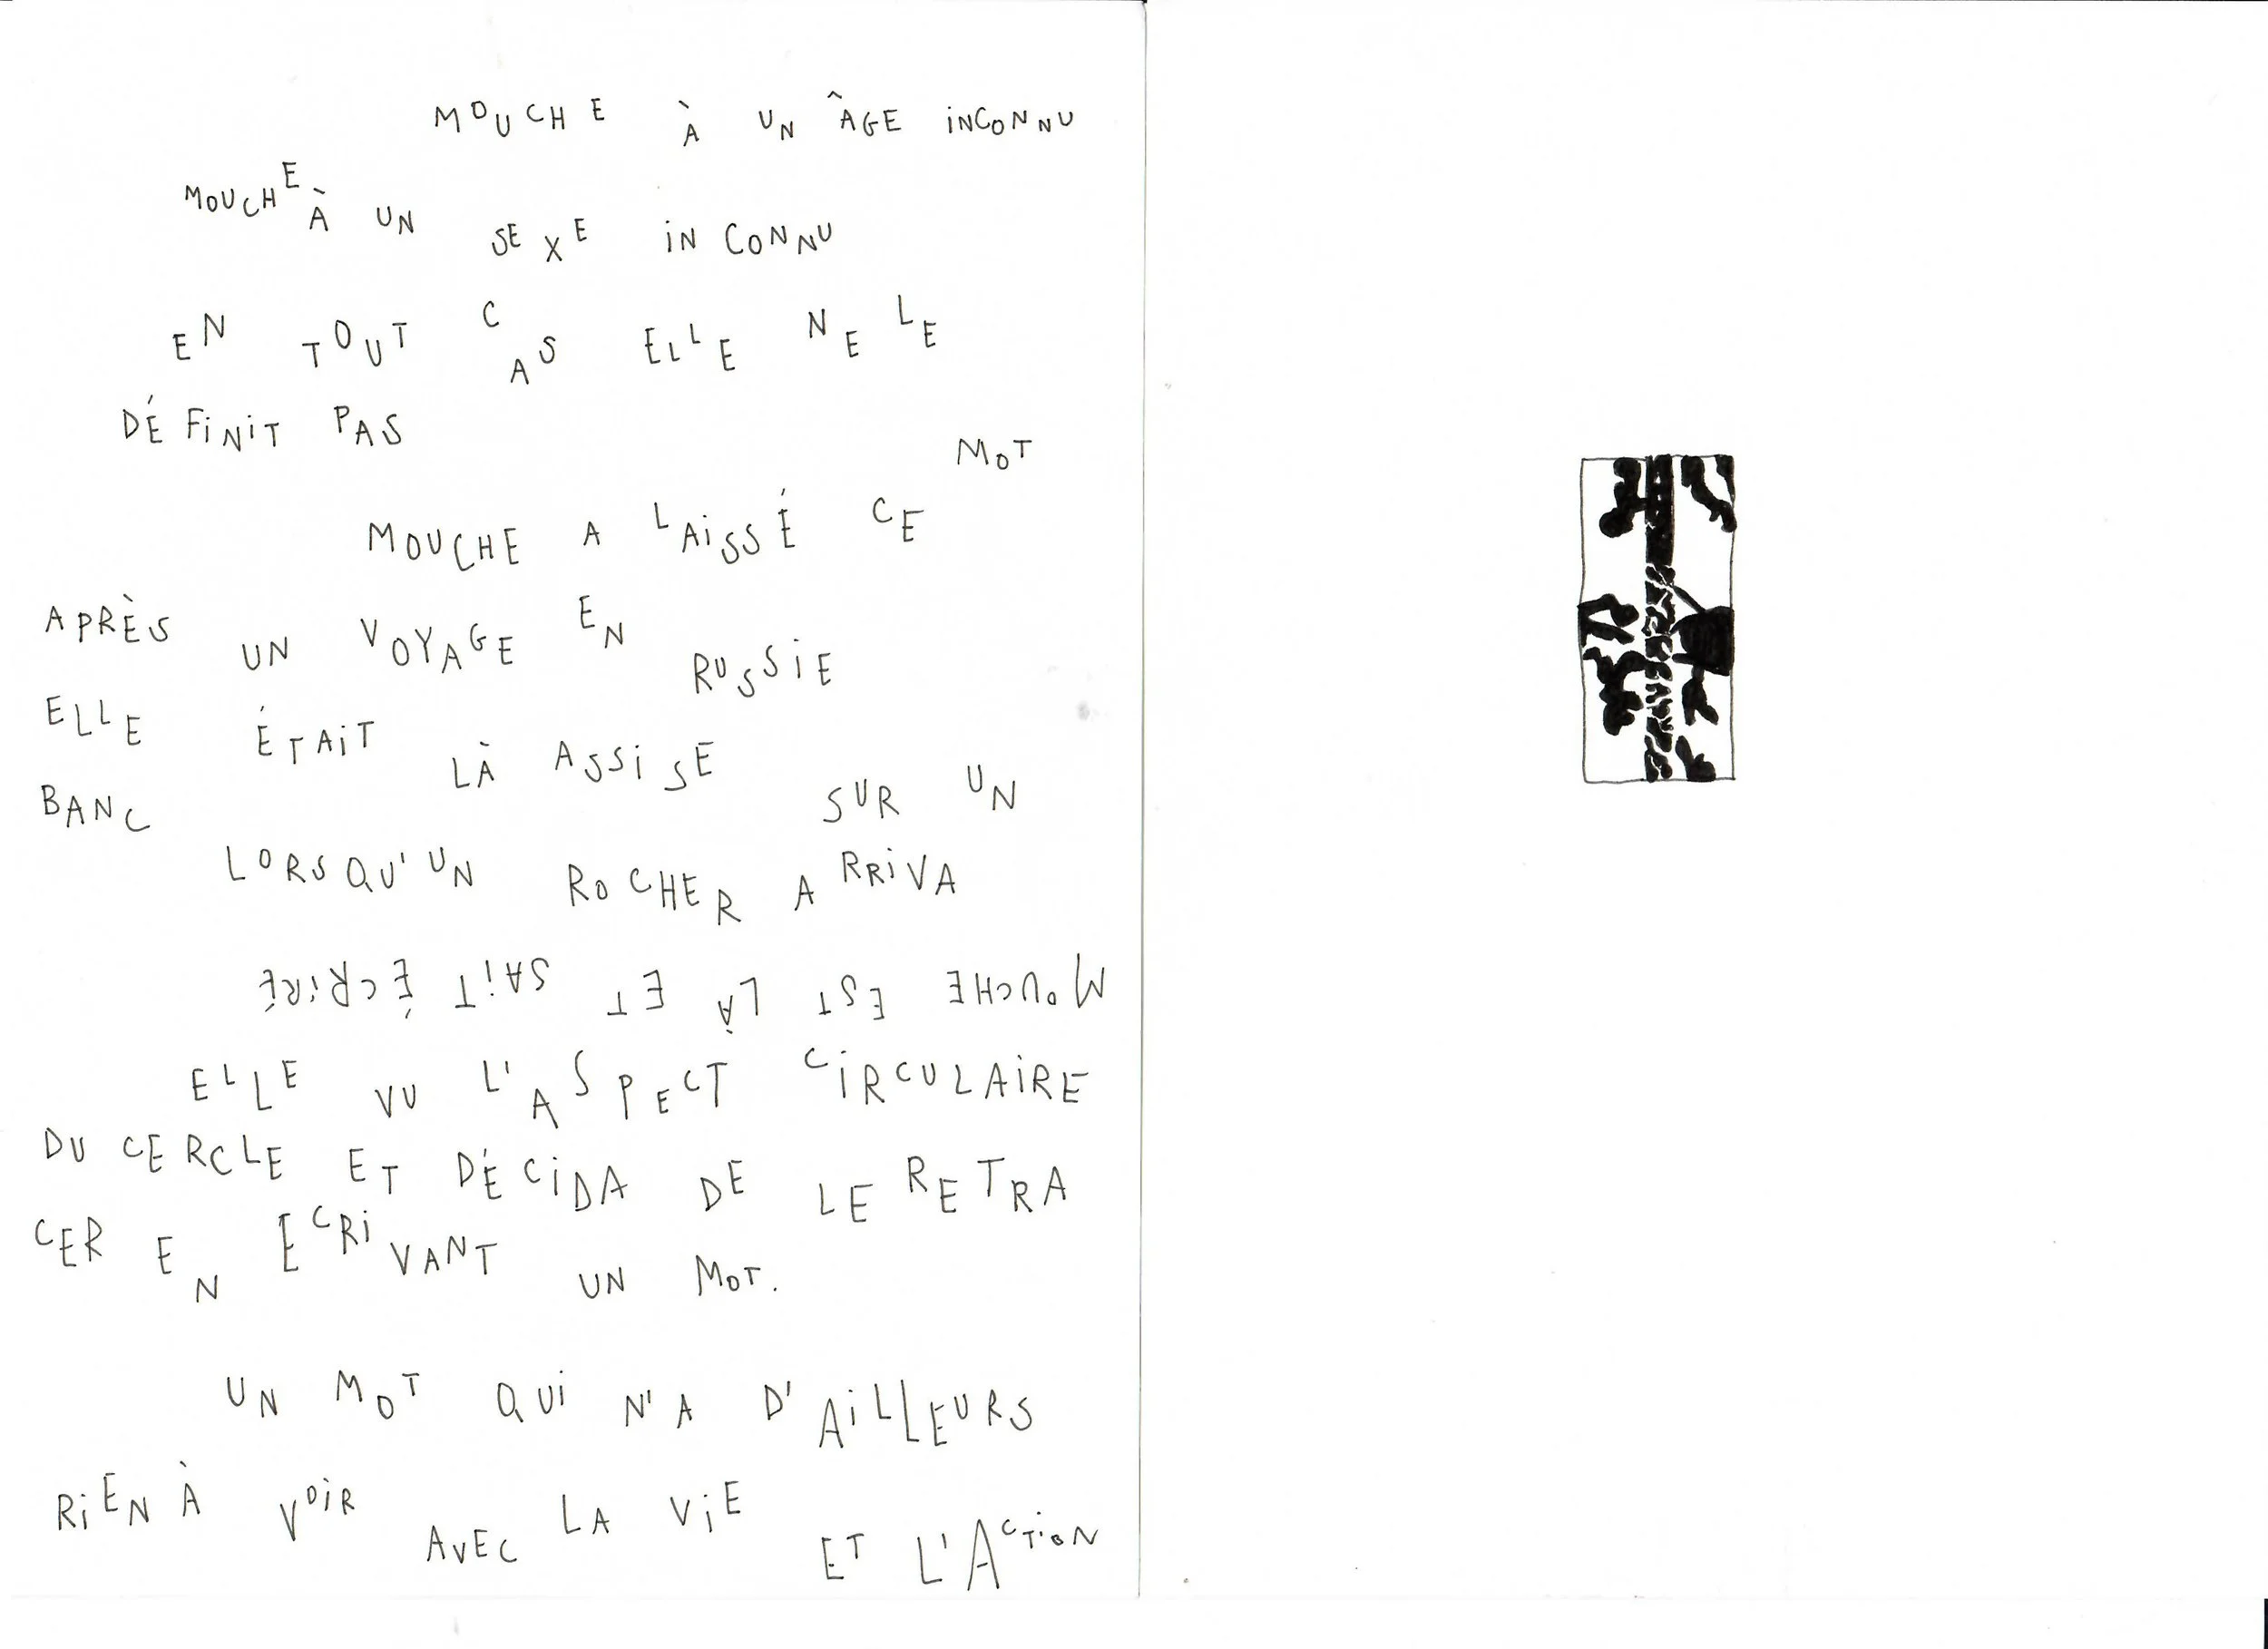 MOUCHE À UN ÂGE INCONNU
MOUCHE À UN SEXE INCONNU
EN TOUT CAS ELLE NE LE
DÉFINIT PAS
MOUCHE A LAISSÉ CE MOT
APRÈS UN VOYAGE EN RUSSIE
ELLE ÉTAIT LÀ ASSISE SUR UN
BANC
LORSQU'UN ROCHER ARRIVA
MOUCHE EST LÀ ET SAIT ÉCRIRE
ELLE VU L'ASPECT CIRCULAIRE
DU CERCLE ET DÉCIDA DE LE RETRA
CER EN ECRIVANT UN MOT.
UN MOT QUI N'A D'AILLEURS
RIEN À VOIR AVEC LA VIE ET L'ACTION